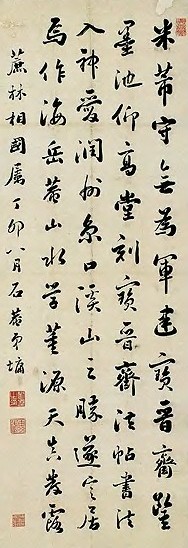 米芾守無為軍建寶晉齋鑿
墨池仰高堂刻寶晉齋法帖書法
入神愛潤州京口溪山之勝遂定居
焉作海岳菴山水學董源天真發露
蔗林相國屬丁卯八月石菴弟墉